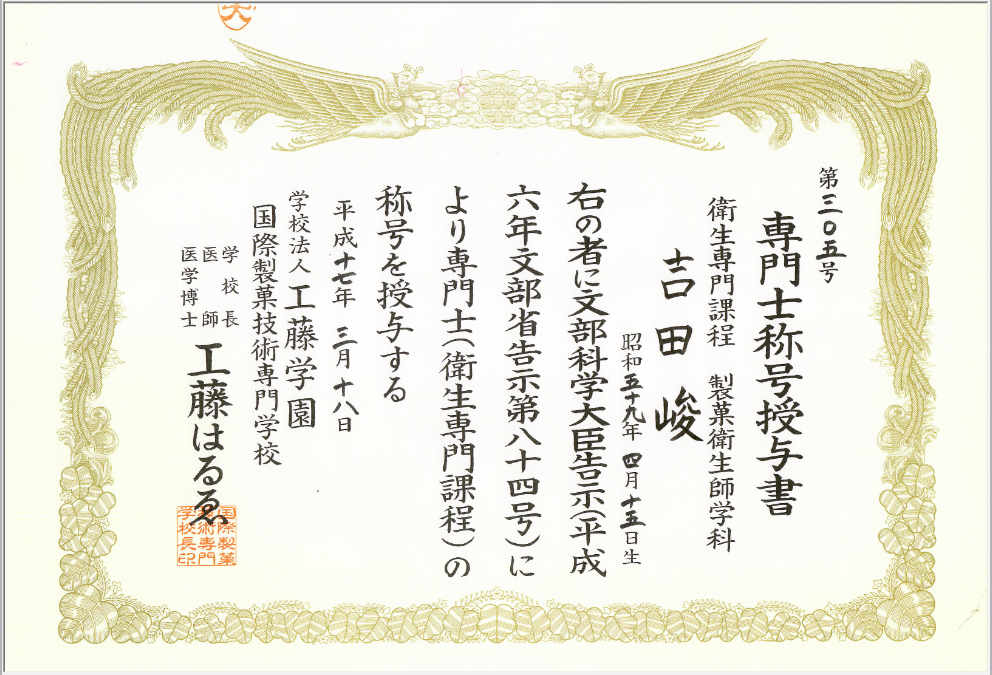 第三〇五号
専門士称号授与書
衛生専門課程 製菓衛生師学科
吉田峻
昭和五十九年四月十五日生
右の者に文部科学大臣告示(平成
六年文部省告示第八十四号)に
より専門士(衛生専門課程)の
称号を授与する
平成十七年三月十八日
学校法人工藤学園
国際製菓技術専門学校
学校長
医師
医学博士
工藤はるゑ
国際製菓
技術専門
学校長印